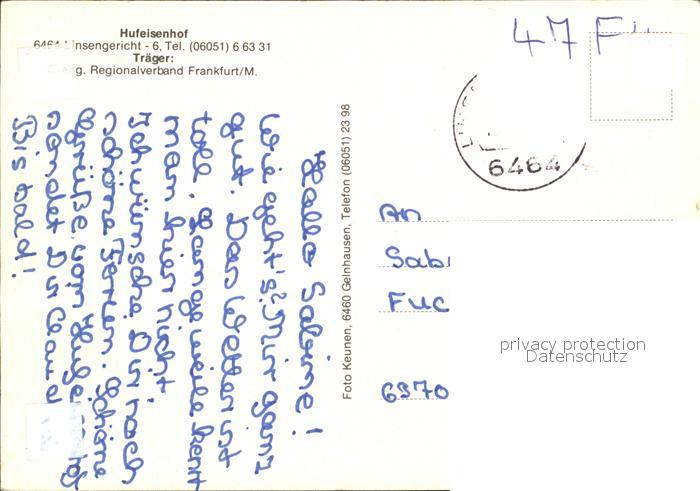 Hufeisenhof
6464 Linsengericht - 6, Tel. (06051) 6 63 31
Träger:
Evang. Regionalverband Frankfurt/M.
Hallo Sabine!
Wie geht's? Mir ganz
gut. Das Wetter ist
toll. Langeweile kennt
man hier nicht!
Ich wünsche Dir noch
schöne Ferien. Schöne
Grüße vom
sendet Dir
Bis bald!
Foto Keunen, 6460 Gelnhausen, Telefon (06051) 23 98
47
6464
An
Sabi
Fuc
6370
privacy protection
Datenschutz